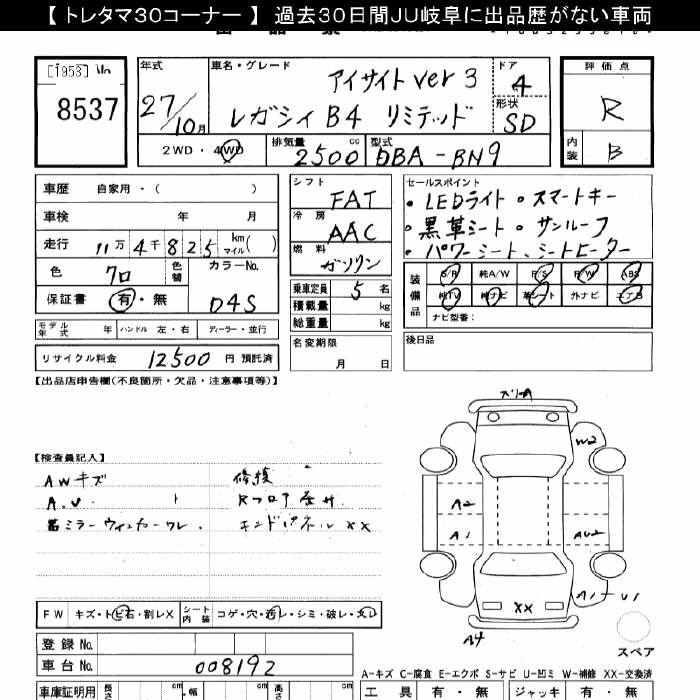 【 トレタマ30コーナー 】 過去30日間JU岐阜に出品歴がない車両
[1953] No
8537
年式
27/10月
車名・グレード
アイサイト ver 3
レガシィ B4 リミテッド
ドア
4
形状
SD
評価点
R
内装
B
2WD・4WD
排気量
2500 cc
型式
DBA-BN9
車歴 自家用・( )
車検 年 月
走行 11万 4千 8 2 5 km マイル( )
色 クロ 色替 カラーNo. D4S
保証書 有・無
モデル年式 年 ハンドル 左・右 ディーラー・並行
リサイクル料金 12500 円 預託済
シフト FAT
冷房 AAC
燃料 ガソリン
乗車定員 5 名
積載量 kg
総重量 kg
名変期限
月 日
セールスポイント
・LEDライト ・スマートキー
・黒革シート ・サンルーフ
・パワーシート、シートヒーター
装備品
S/R 純A/W P/S P/W ABS
純TV 純ナビ 革シート 外ナビ エアB
ナビ型番:
後日品
【出品店申告欄(不良箇所・欠品・注意事項等)】
【検査員記入】
AWキズ
A.U.
ミラーウィンカーワレ.
修復
Rフロア
エンドパネル XX
W2
A2
A1
AU2
A1-U1
XX
A4
スペア
FW キズ・トビ石・割レX シート内装 コゲ・穴・シミ・破レ・スレ
登録 No.
車台 No. 008192
A-キズ C-腐食 E-エクボ S-サビ U-凹ミ W-補修 XX-交換済
車庫証明用 長さ cm ・幅 cm 高さ cm
工具 有・無 ジャッキ 有・無